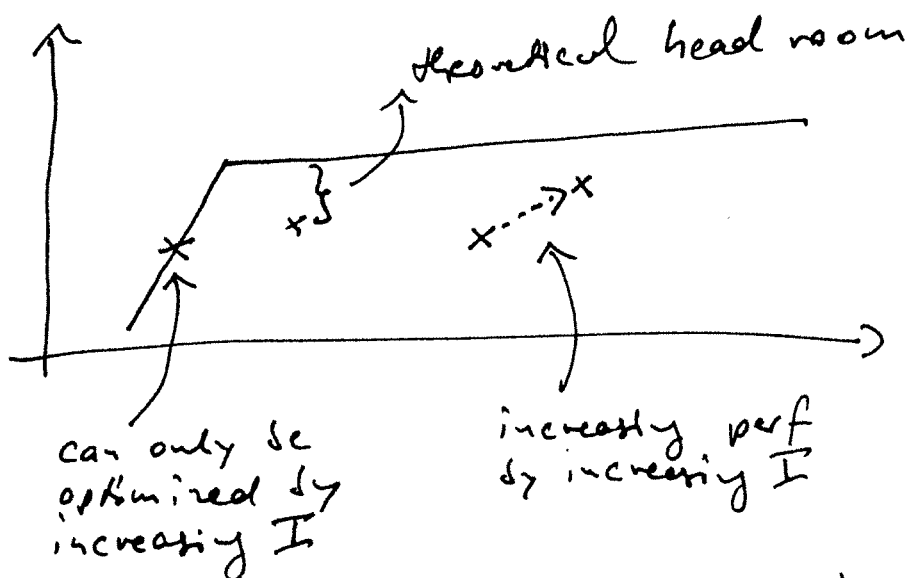 theoretical head room
can only be
optimized by
increasing I
increasing perf
by increasing I